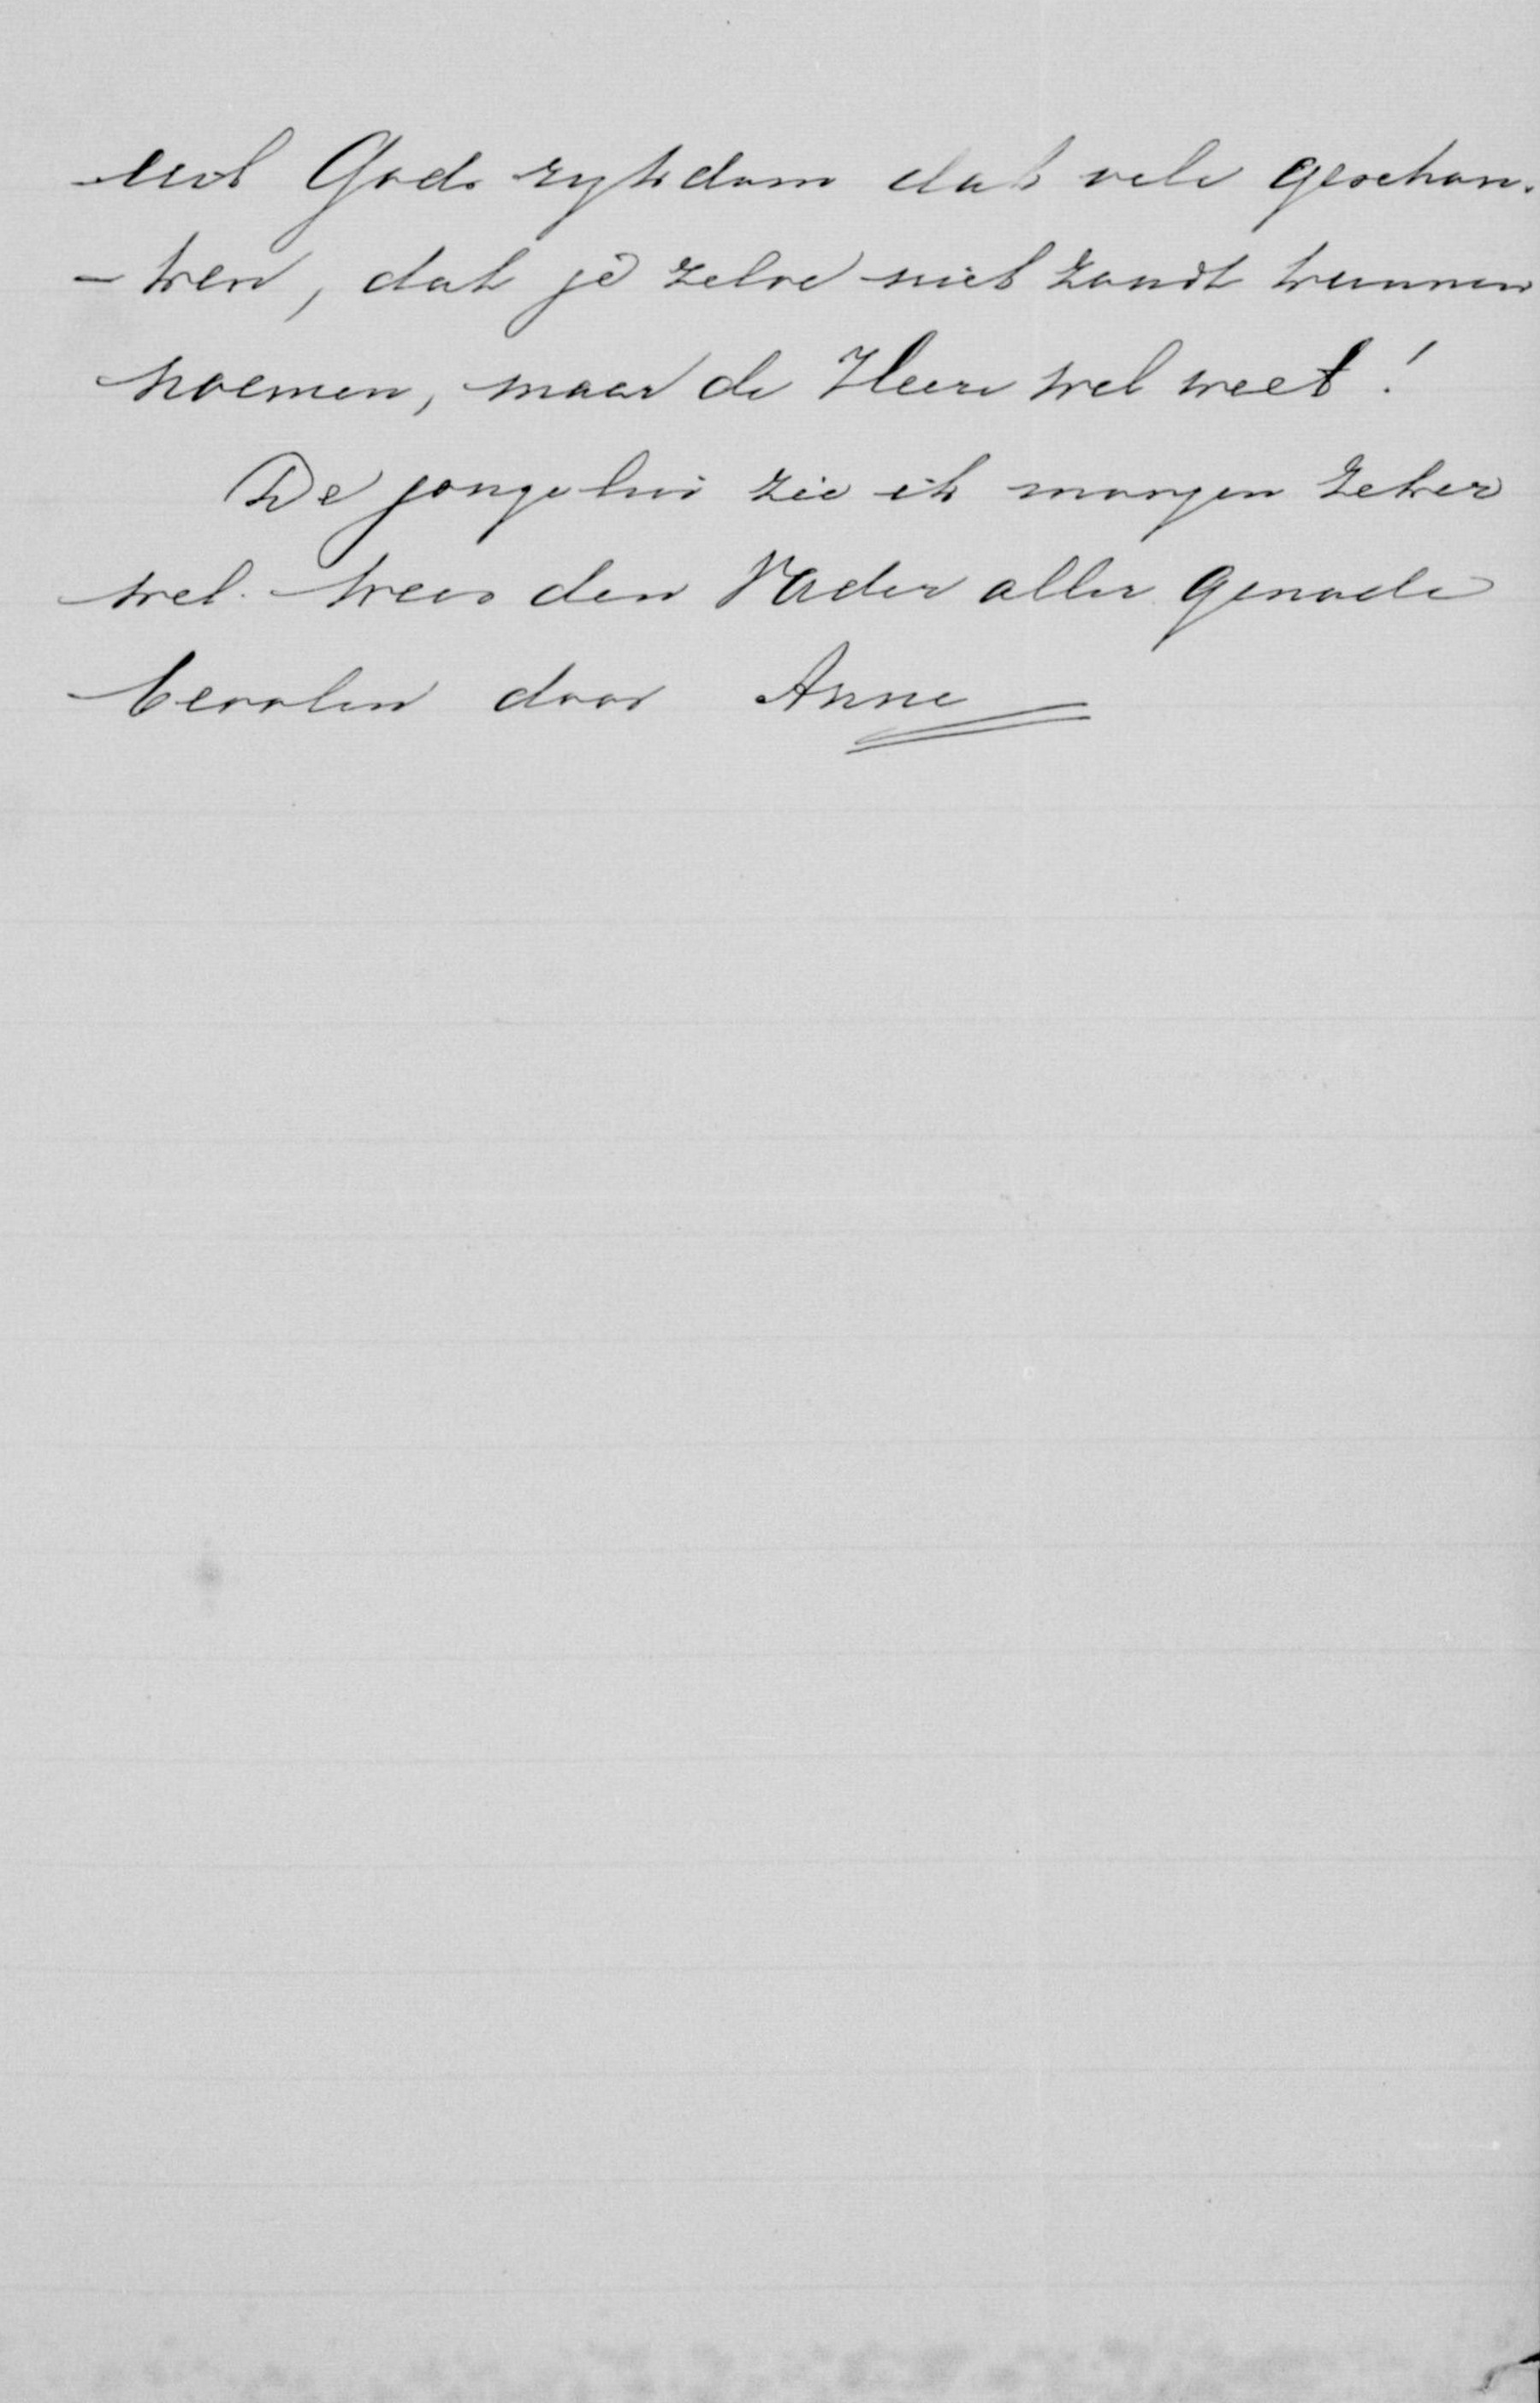 uit Gods rykdom dat vele geschon-
- ken, dat je zelve niet zoudt kunnen
noemen, maar de Heere wel weet!
De jongelui zie ik morgen zeker
wel. Wees den Vader aller genade
bevolen door Anne